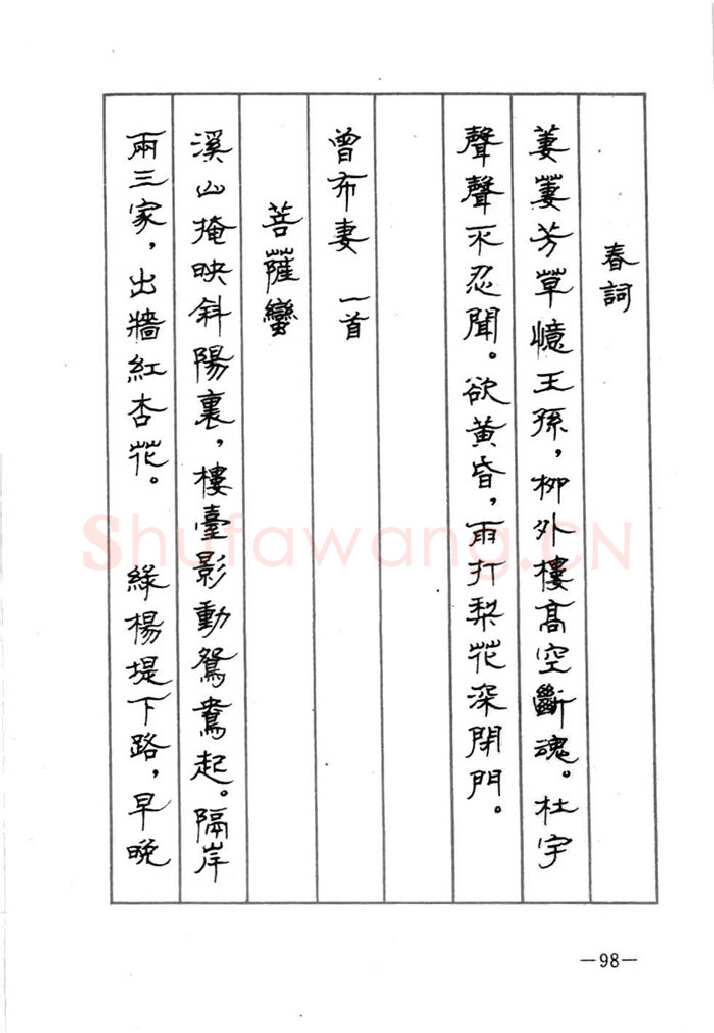 春詞
萋萋芳草憶王孫，柳外樓髙空斷魂。杜宇
聲聲不忍聞。欲黃昏，雨打梨花深閉門。
曾布妻 一首
菩薩蠻
溪山掩映斜陽裏，樓臺影動鴛鴦起。隔岸
兩三家，出牆紅杏花。 綠楊堤下路，早晚
—98—
Shufawang.CN